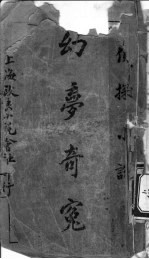 偵探小說
幻夢奇冤
上海改良小說會社